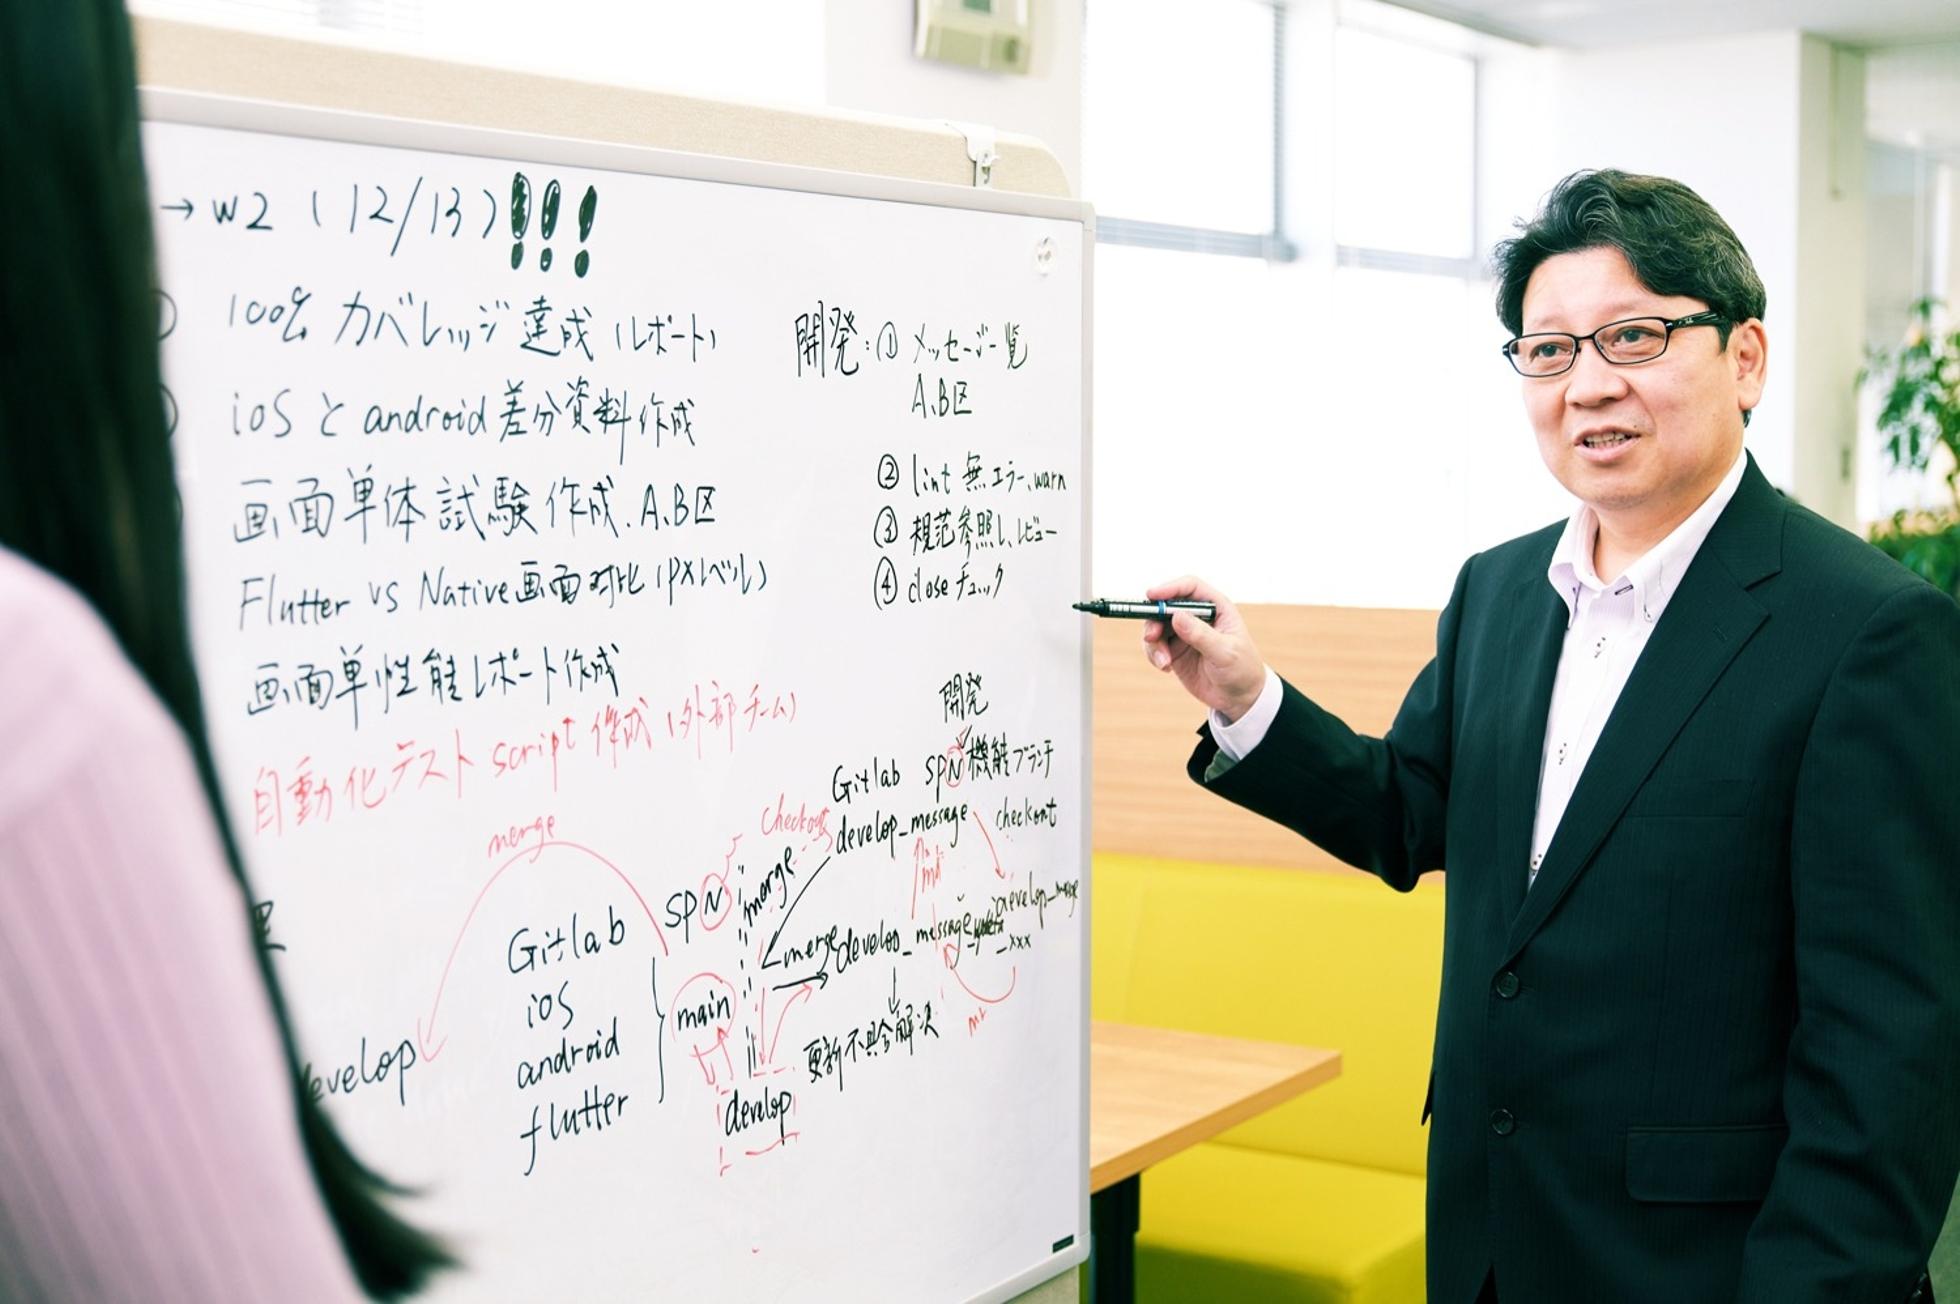 → W2 (12/13)!!!
100% カバレッジ達成 (レポート)
iOSとandroid差分資料作成
画面単体試験作成、A、B区
Flutter vs Native画面対比(PXレベル)
画面単性能レポート作成
自動化テスト script 作成 (外部チーム)
開発:① メッセージ一覧
A、B区
② lint 無エラー、warn
③ 規范参照し、レビュー
④ closeチェック
開発
Gitlab SPN機能ブランチ
develop_message checkout
checkout
merge
merge
SPN
merge develop_message
_xxx
mr
更新不具合解決
Gitlab
iOS
android
flutter
main
develop
develop